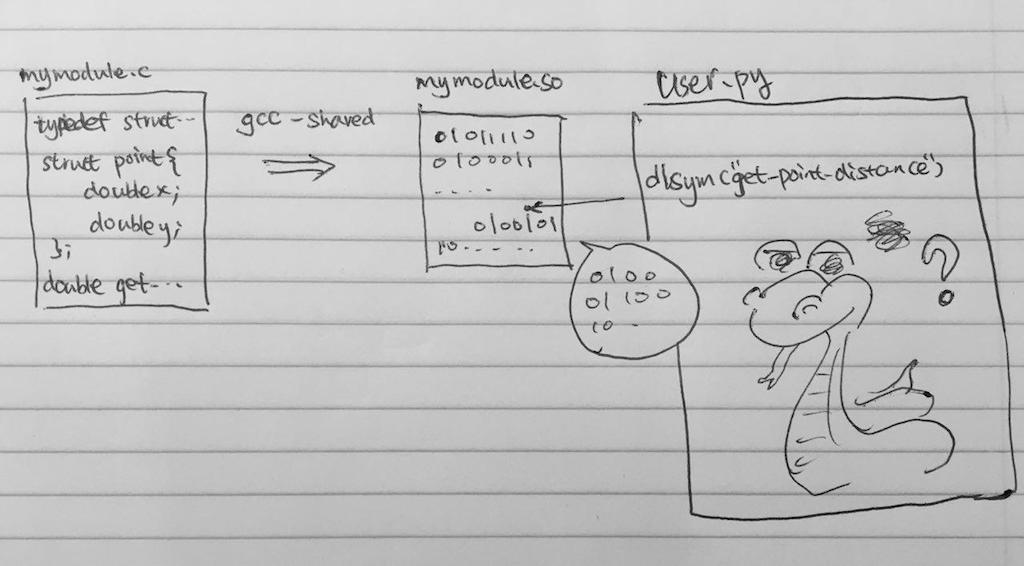 mymodule.c
typedef struct...
struct point{
double x;
double y;
};
double get-...
gcc -shared
mymodule.so
01011110
0100011
....
0100101
10.... ..
user.py
dlsym("get-point-distance")
?
0100
01100
10 -